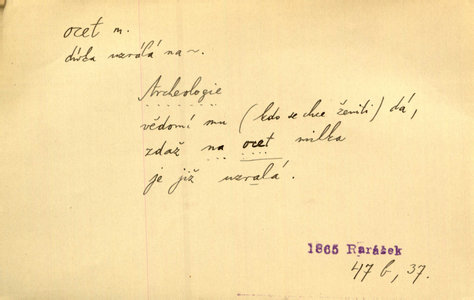 ocet m.
dívka uzrálá na ~.
Archeologie
vědomí mu (kdo se chce ženiti) dá,
zdaž na ocet milka
je již uzralá.
1865 Rarášek
47 b, 37.